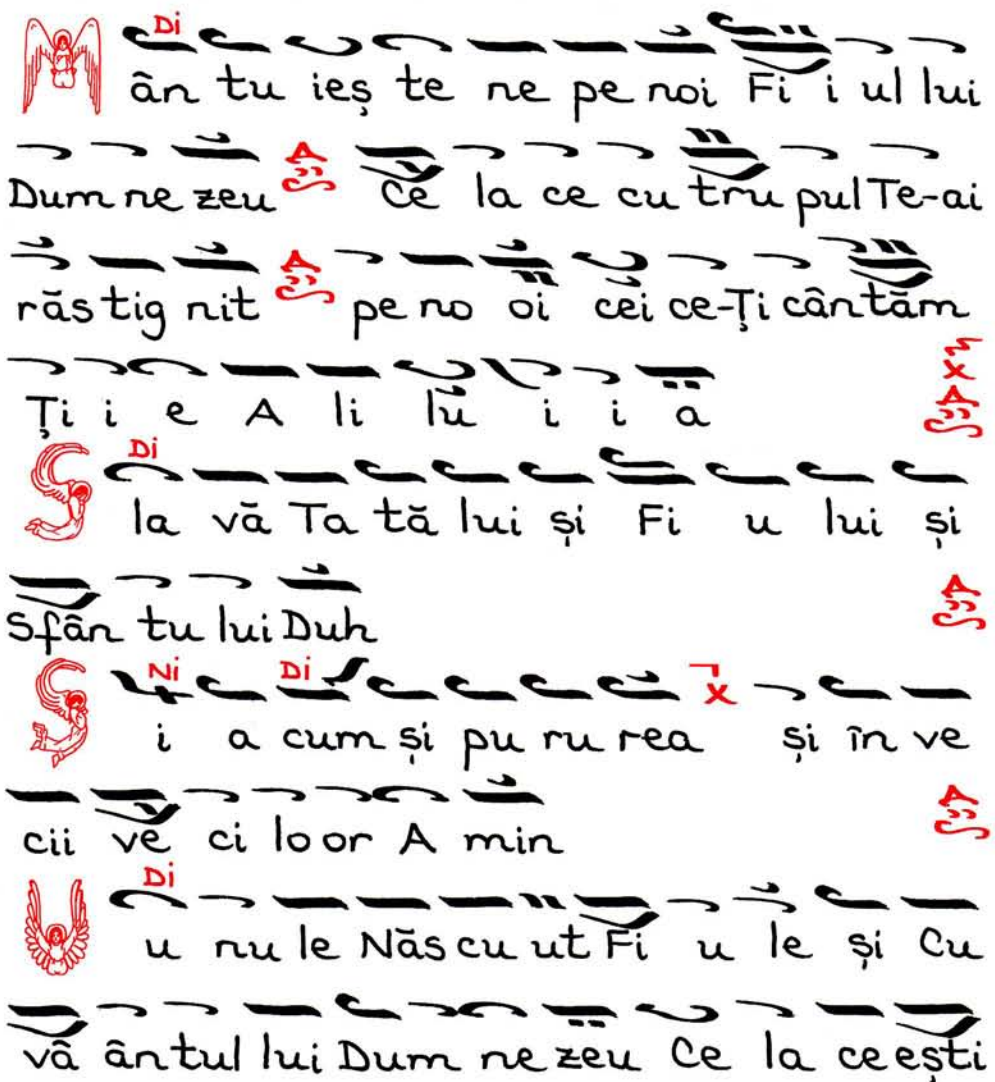 Di
Mân tu ieș te ne pe noi Fi i ul lui
Dum ne zeu Ce la ce cu tru pul Te-ai
răs tig nit pe no oi cei ce-Ți cântăm
Ți i e A li lu i i a
Di
Sla vă Ta tă lui și Fi u lui și
Sfân tu lui Duh
Ni Di
Și a cum și pu ru rea și în ve
cii ve ci lo or A min
Di
Unu nu le Năs cu ut Fi u le și Cu
vâ ântul lui Dum ne zeu Ce la ce ești